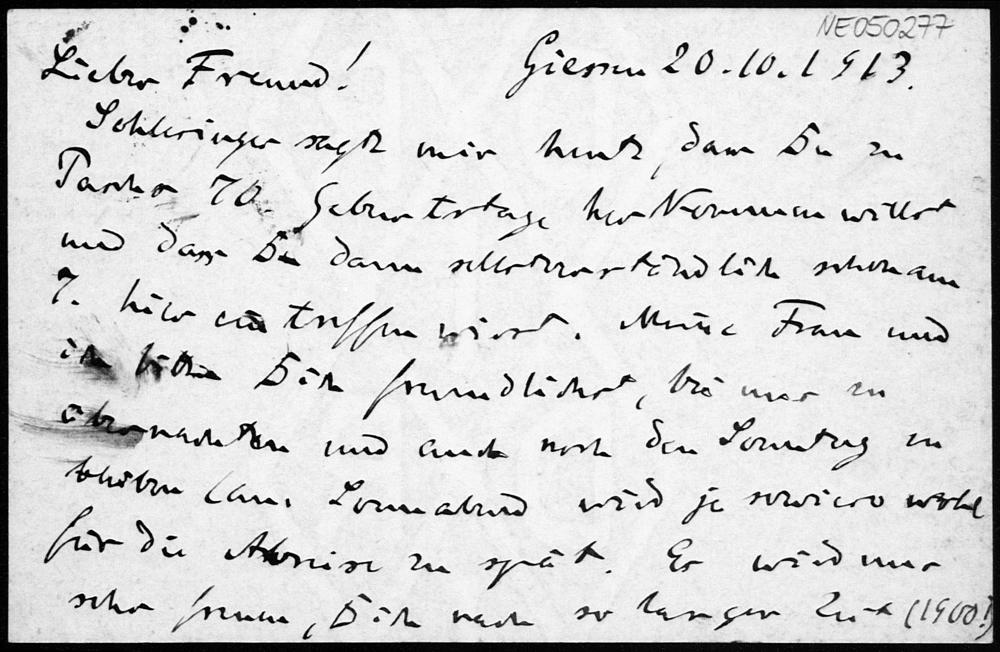 NE050277
Lieber Freund! Giessen 20.10.1913.
Schlesinger sagte mir heute, dass Du zu
Paschs 70. Geburtstage herkommen willst
und dass Du dann selbstverständlich schon am
7. hier eintreffen wirst. Meine Frau und
ich bitten Dich freundlichst, bei uns zu
übernachten und auch noch den Sonntag zu
bleiben (am Sonnabend wird ja sowieso wohl
für die Abreise zu spät. Es wird uns
sehr freuen, Dich nach so langer Zeit (1900!)